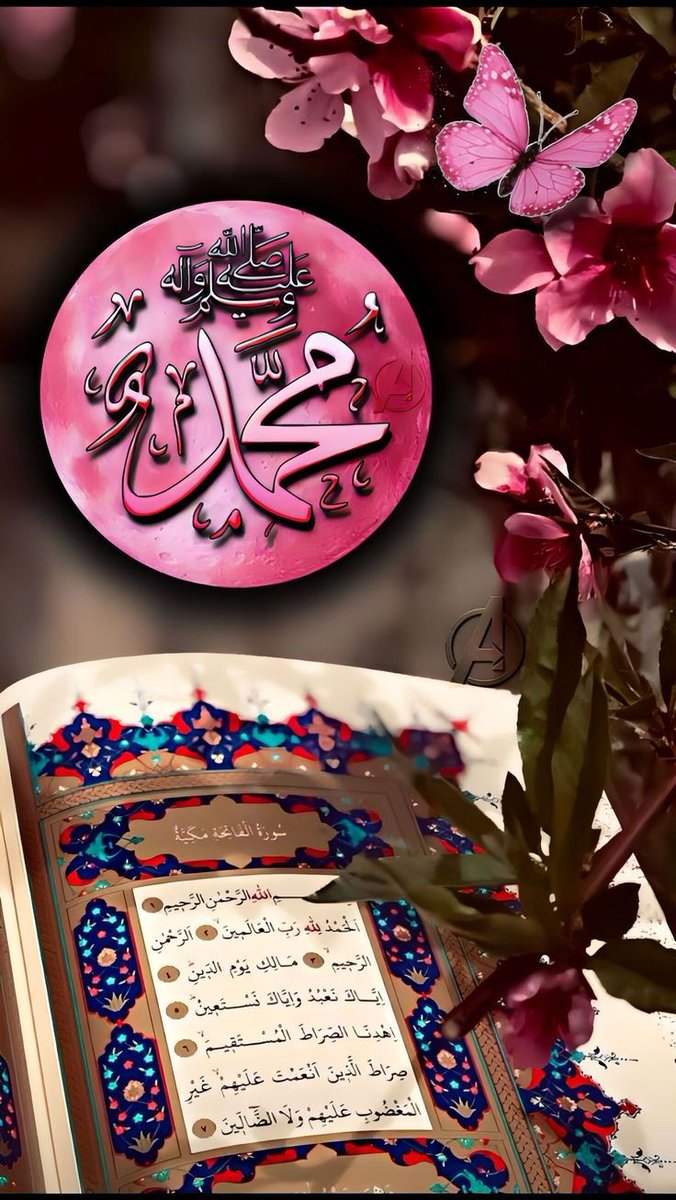 صَلَّى اللّٰه
عَلَيْهِ وَآلِهِ
وَسَلَّم
مُحَمَّد
سُورَةُ الْفَاتِحَةِ مَكِّيَّةٌ
اللّٰهِ الرَّحْمٰنِ الرَّحِيمِ ١
اَلْحَمْدُ لِلّٰهِ رَبِّ الْعَالَمِينَ ٢ اَلرَّحْمٰنِ
الرَّحِيمِ ٣ مَالِكِ يَوْمِ الدِّينِ ٤
اِيَّاكَ نَعْبُدُ وَاِيَّاكَ نَسْتَعِينُ ٥
اِهْدِنَا الصِّرَاطَ الْمُسْتَقِيمَ ٦
صِرَاطَ الَّذِينَ اَنْعَمْتَ عَلَيْهِمْ غَيْرِ
الْمَغْضُوبِ عَلَيْهِمْ وَلَا الضَّالِّينَ ٧